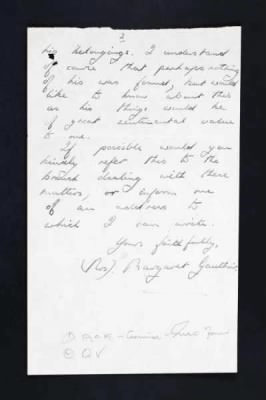 2
his belongings. I understand
of course that perhaps nothing
of his was found, but would
like to know about this
as his things would be
of great sentimental value
to me.
If possible would you
kindly refer this to the
branch dealing with these
matters, or inform me
of an address to
which I can write.
Yours faithfully,
(Mrs). Margaret